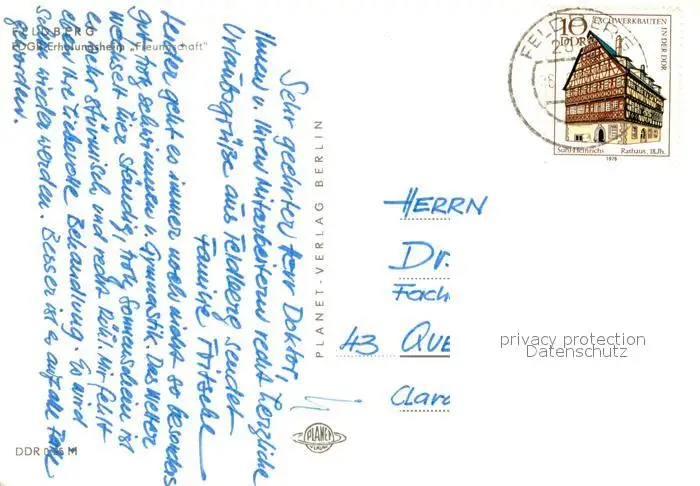 FELDBERG
FDGB-Erholungsheim „Freundschaft"
Sehr geehrter Herr Doktor,
Ihnen u. Ihren Mitarbeitern recht herzliche
Urlaubsgrüße aus Feldberg sendet
Familie Fritsche
Leider geht es immer noch nicht so besonders
gut trotz schwimmen u. Gymnastik. Das Wetter
wechselt hier ständig, trotz Sonnenschein ist
es sehr stürmisch und recht kühl. Mir fehlt
eben Ihre Behandlung. So wird
schon wieder werden. Besser ist es auf alle Fälle
geworden.
DDR M
PLANET-VERLAG BERLIN
PLANET
VERLAG
FELDBERG
10
DDR
FACHWERKBAUTEN
IN DER DDR
Suhl-Heinrichs Rathaus, 18.Jh.
1978
HERRN
Dr.
Fach
43 QUE
Clara
privacy protection
Datenschutz